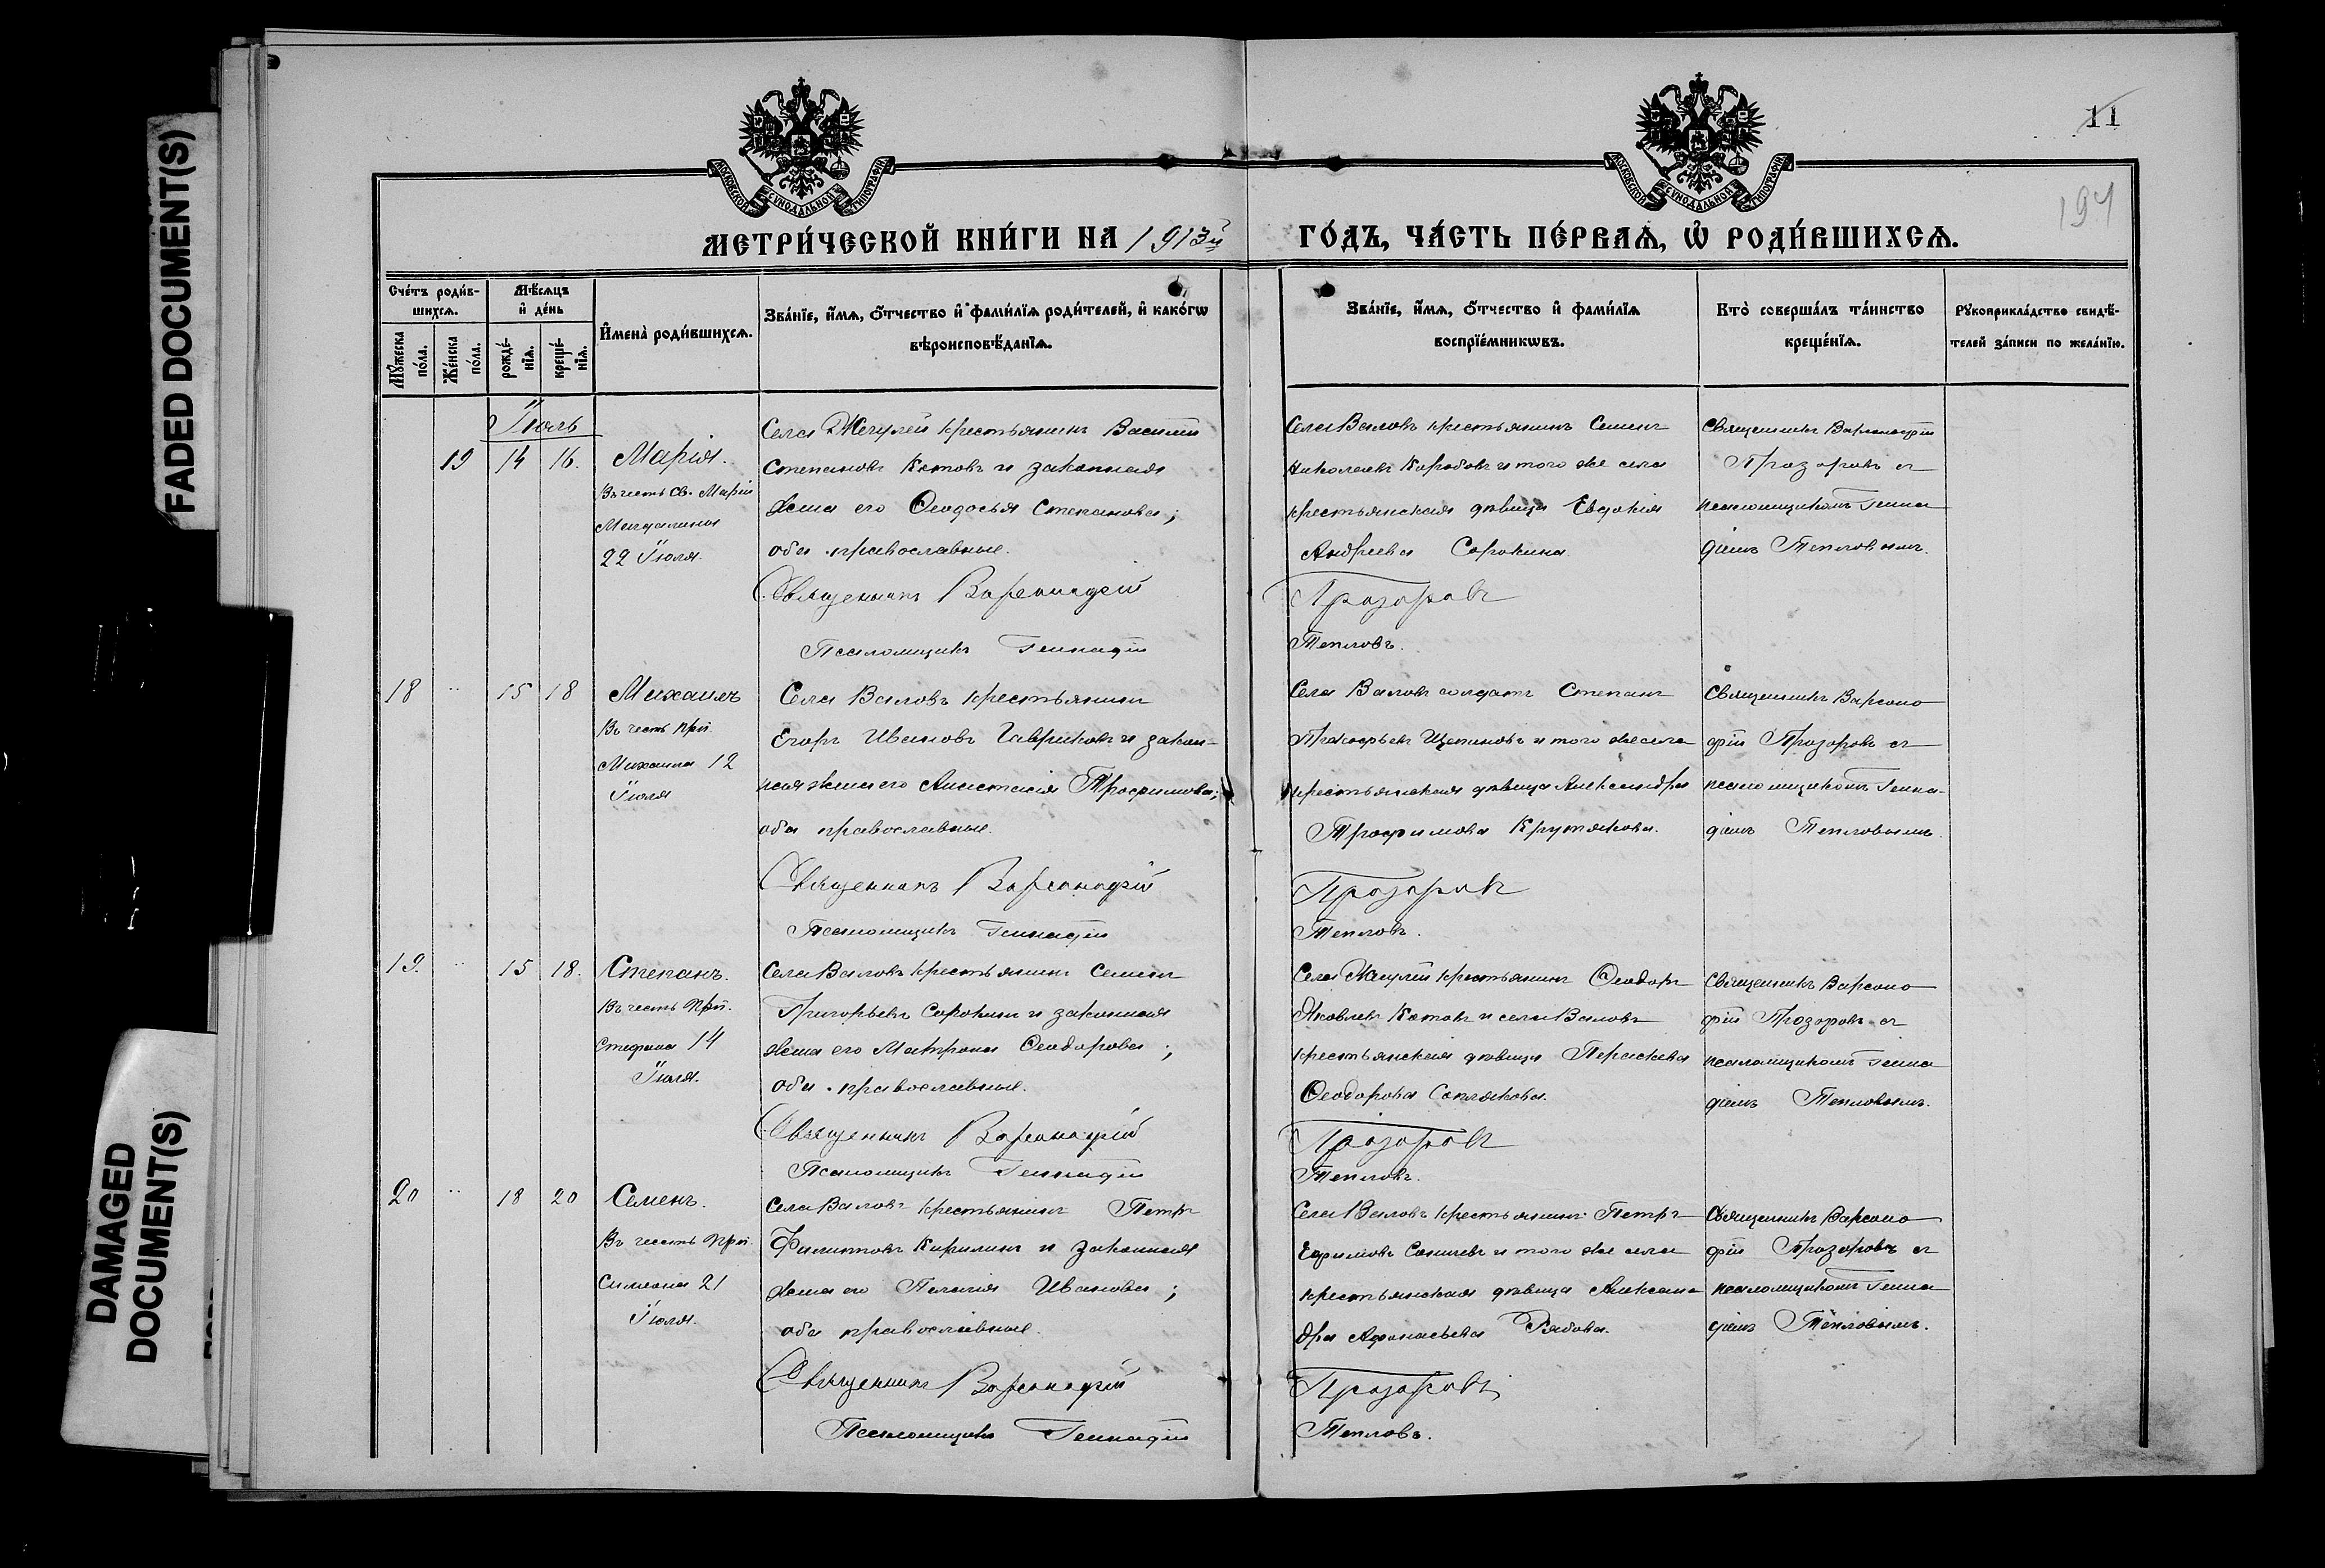 FADED DOCUMENT(S)
DAMAGED
DOCUMENT(S)
11
194
МОСКОВСКОЙ СѴНОДАЛЬНОЙ ТИПОГРАФІИ
МОСКОВСКОЙ СѴНОДАЛЬНОЙ ТИПОГРАФІИ
МЕТРИ́ЧЕСКОЙ КНИ́ГИ НА 1913й
ГО́ДЪ, ЧА́СТЬ ПЕ́РВАѦ, Ѡ҆ РОДИ́ВШИХСѦ.
Сче́тъ роди́в-
шихсѧ.
Мꙋ́жеска по́ла.
Же́нска по́ла.
Мѣ́сѧцъ
и҆ де́нь
рожде́-нїѧ.
креще́-нїѧ.
И҆мена̀ роди́вшихсѧ.
Зва́нїе, и҆́мѧ, ѻ҆́тчество и҆ фами́лїѧ роди́телей, и҆ како́гѡ
вѣроисповѣ́данїѧ.
Зва́нїе, и҆́мѧ, ѻ҆́тчество и҆ фами́лїѧ
воспрїе́мникѡвъ.
Кто̀ соверша́лъ та́инство
креще́нїѧ.
Рꙋкоприкла́дство свидѣ́-
телей за́писи по жела́нїю.
Іюль
19 14 16. Марія.
Въ честь св. Маріи
Магдалины
22 Іюля.
Села Жегулей крестьянинъ Василій
Степановъ Котовъ и законная
жена его Ѳеодосья Степанова;
оба православные.
Священникъ Варсонофій
Псаломщикъ Геннадій
Села Валовъ крестьянинъ Семенъ
Николаевъ Коробовъ и того же села
крестьянская дѣвица Евдокія
Андреева Сорокина.
Прозоровъ
Тепловъ.
Священникъ Варсонофій
Прозоровъ съ
псаломщикомъ Генна
діемъ Тепловымъ.
18 " 15 18 Михаилъ
Въ честь прп.
Михаила 12
Іюля
Села Валовъ крестьянинъ
Егоръ Ивановъ Гавриковъ и закон-
ная жена его Анастасія Трофимова;
оба православные.
Священникъ Варсонофій
Псаломщикъ Геннадій
Села Валовъ солдатъ Степанъ
Прокофьевъ Щепиновъ и того же села
крестьянская дѣвица Александра
Трофимова Крутякова.
Прозоровъ
Тепловъ.
Священникъ Варсоно
фій Прозоровъ съ
псаломщикомъ Генна-
діемъ Тепловымъ
19. " 15 18. Степанъ.
Въ честь прп.
Стефана 14
Іюля.
Села Валовъ крестьянинъ Семенъ
Григорьевъ Сорокинъ и законная
жена его Матрона Ѳеодорова;
оба православные.
Священникъ Варсонофій
Псаломщикъ Геннадій
Села Жегулей крестьянинъ Ѳеодоръ
Яковлевъ Котовъ и села Валовъ
крестьянская дѣвица Параскева
Ѳеодорова
Прозоровъ
Тепловъ.
Священникъ Варсоно
фій Прозоровъ съ
псаломщикомъ Генна
діемъ Тепловымъ.
20 " 18 20 Семенъ.
Въ честь прп.
Симеона 21
Іюля.
Села Валовъ крестьянинъ Петръ
Филипповъ Кирилинъ и законная
жена его Пелагія Иванова;
оба православные.
Священникъ Варсонофій
Псаломщикъ Геннадій
Села Валовъ крестьянинъ Петръ
Ефимовъ и того же села
крестьянская дѣвица Алексан
дра Афанасьева Рябова.
Прозоровъ
Тепловъ.
Священникъ Варсоно
фій Прозоровъ съ
псаломщикомъ Генна
діемъ Тепловымъ.